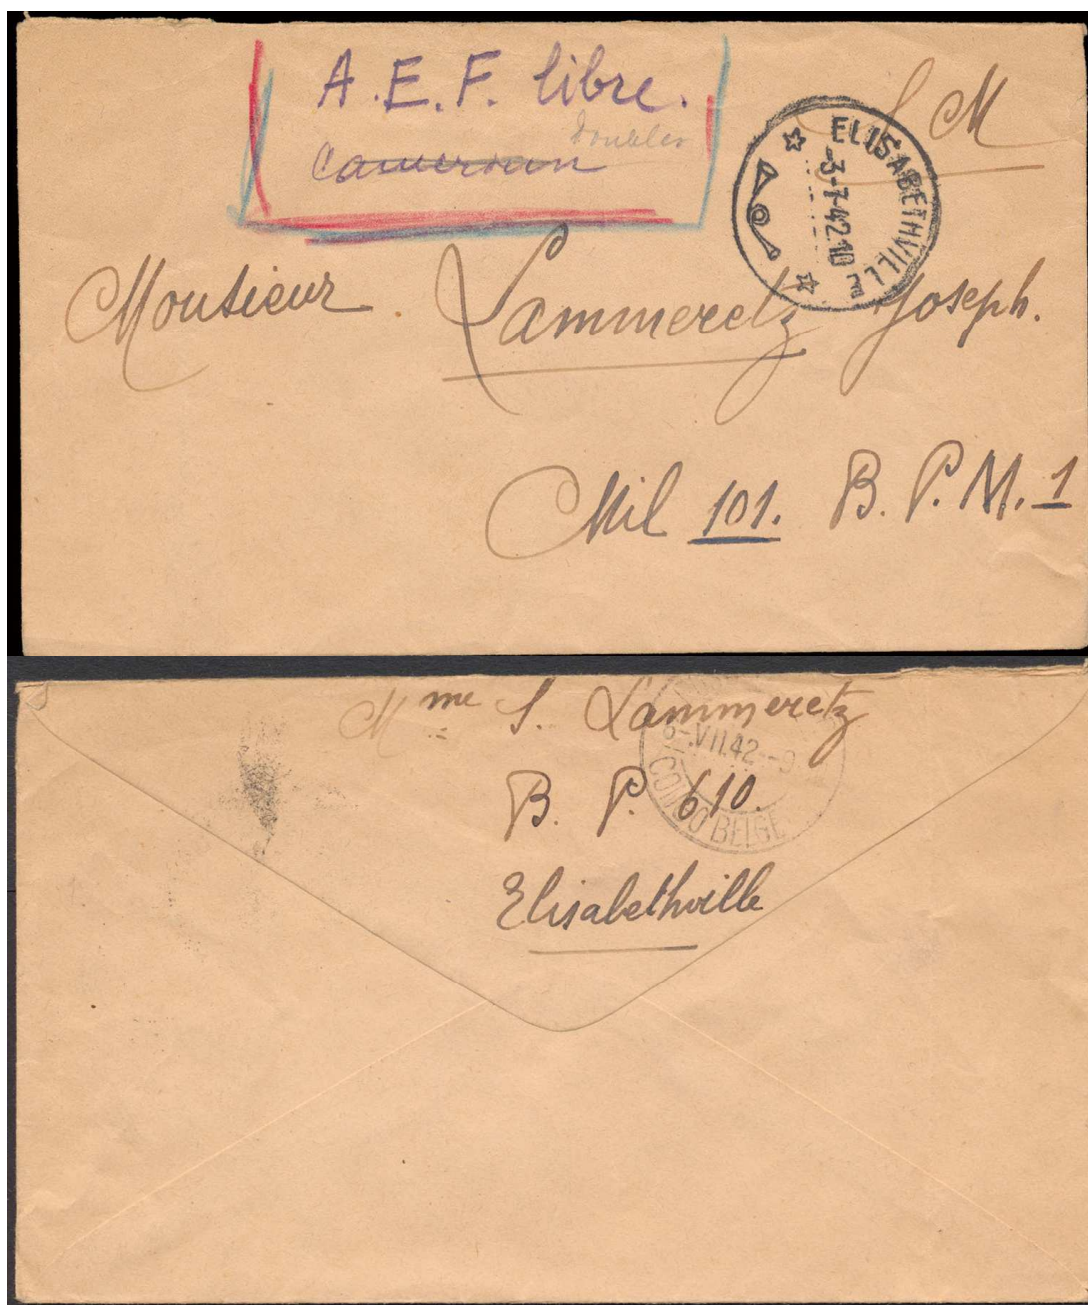 A.E.F. libre.
Cameroun
S M
ELISABETHVILLE
-3-7-42.10
Monsieur Lammeretz Joseph.
Mil 101. B.P.M.1
Mme S. Lammeretz
6-.VII.42--9
B. P. 610.
CONGO BELGE
Elisabethville